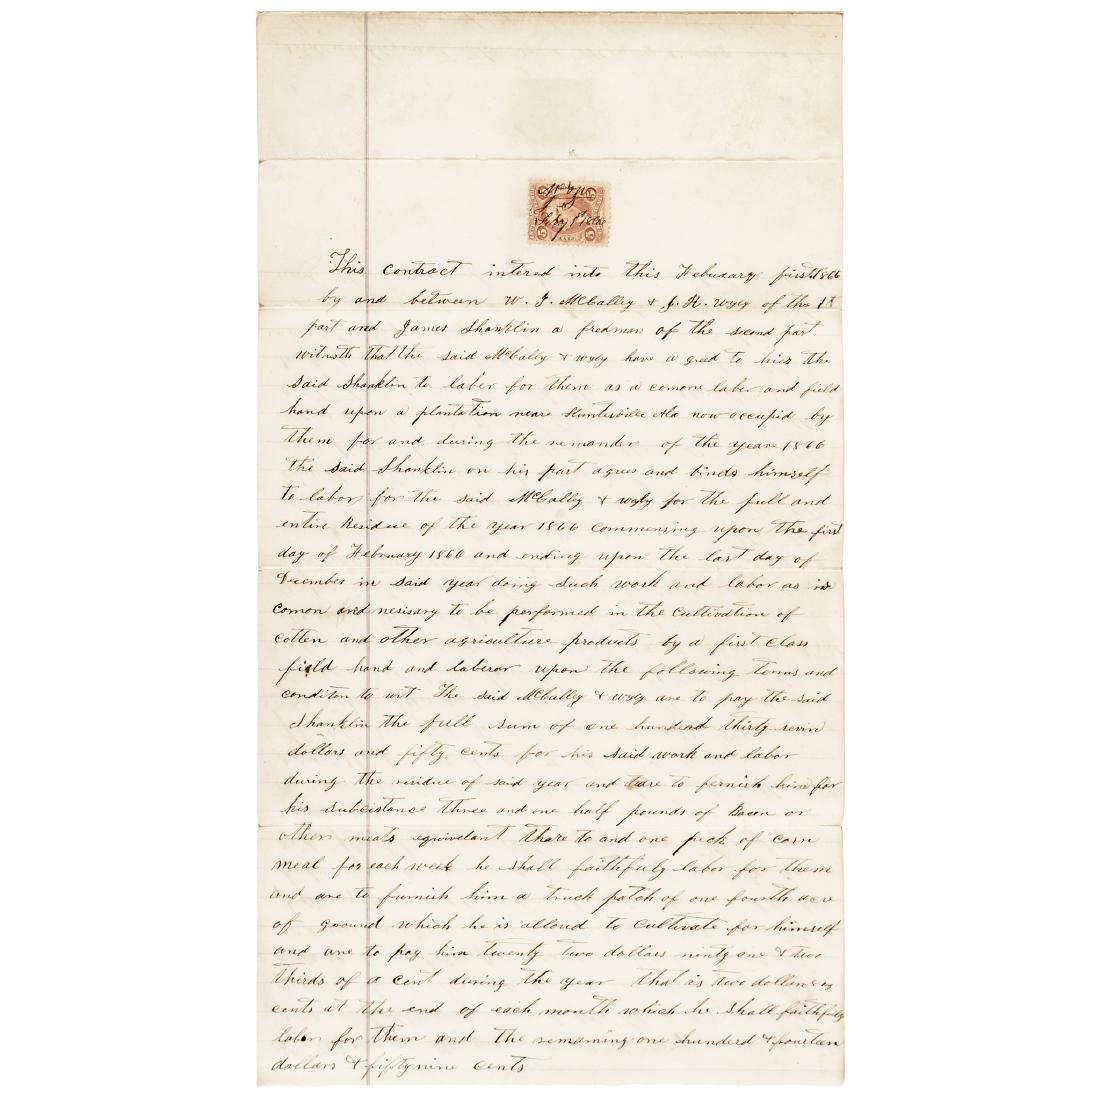 5 5
Feby 1st 1866
5 5
This contract intered into this February first 1866
by and between W. J. McCalley & J. H. Wyly of the 1st
part and James Shanklin a fredman of the second part
witnesth that the said McCally & Wyly have a greed to hier the
said Shanklin to laber for them as a comone laber and field
hand upon a plantation neare Huntsville Ala now occupid by
them for and during the remander of the yeare 1866
the said Shanklin on his part agrees and binds himself
to labor for the said McCalley & Wyly for the full and
entire Residue of the year 1866 Commensing upon the first
day of February 1866 and ending upon the last day of
December in said year doiing such work and labor as is
comon and nesisary to be performed in the Cultivation of
Cotten and other agriculture products by a first Class
field hand and laberor upon the following terms and
conditon to wit The said McCalley & Wyly are to pay the said
Shanklin the full sum of one hundred thirty sevin
dollars and fifty cents for his said work and labor
during the residue of said year and are to fernish him for
his subcistance three and one half pounds of Bacon or
other meats equivelant thare to and one peck of corn
meal for each week he shall faithfuly labor for them
and are to furnish him a truck patch of one fourth acre
of ground which he is alloud to Cultivate for himself
and are to pay him twenty two dollars ninty one & two
thirds of a cent during the year that is two dollars &
cents at the end of each month which he shall faithfuly
labor for them and the remaming one hunderd & fourteen
dollars & fiftynine cents